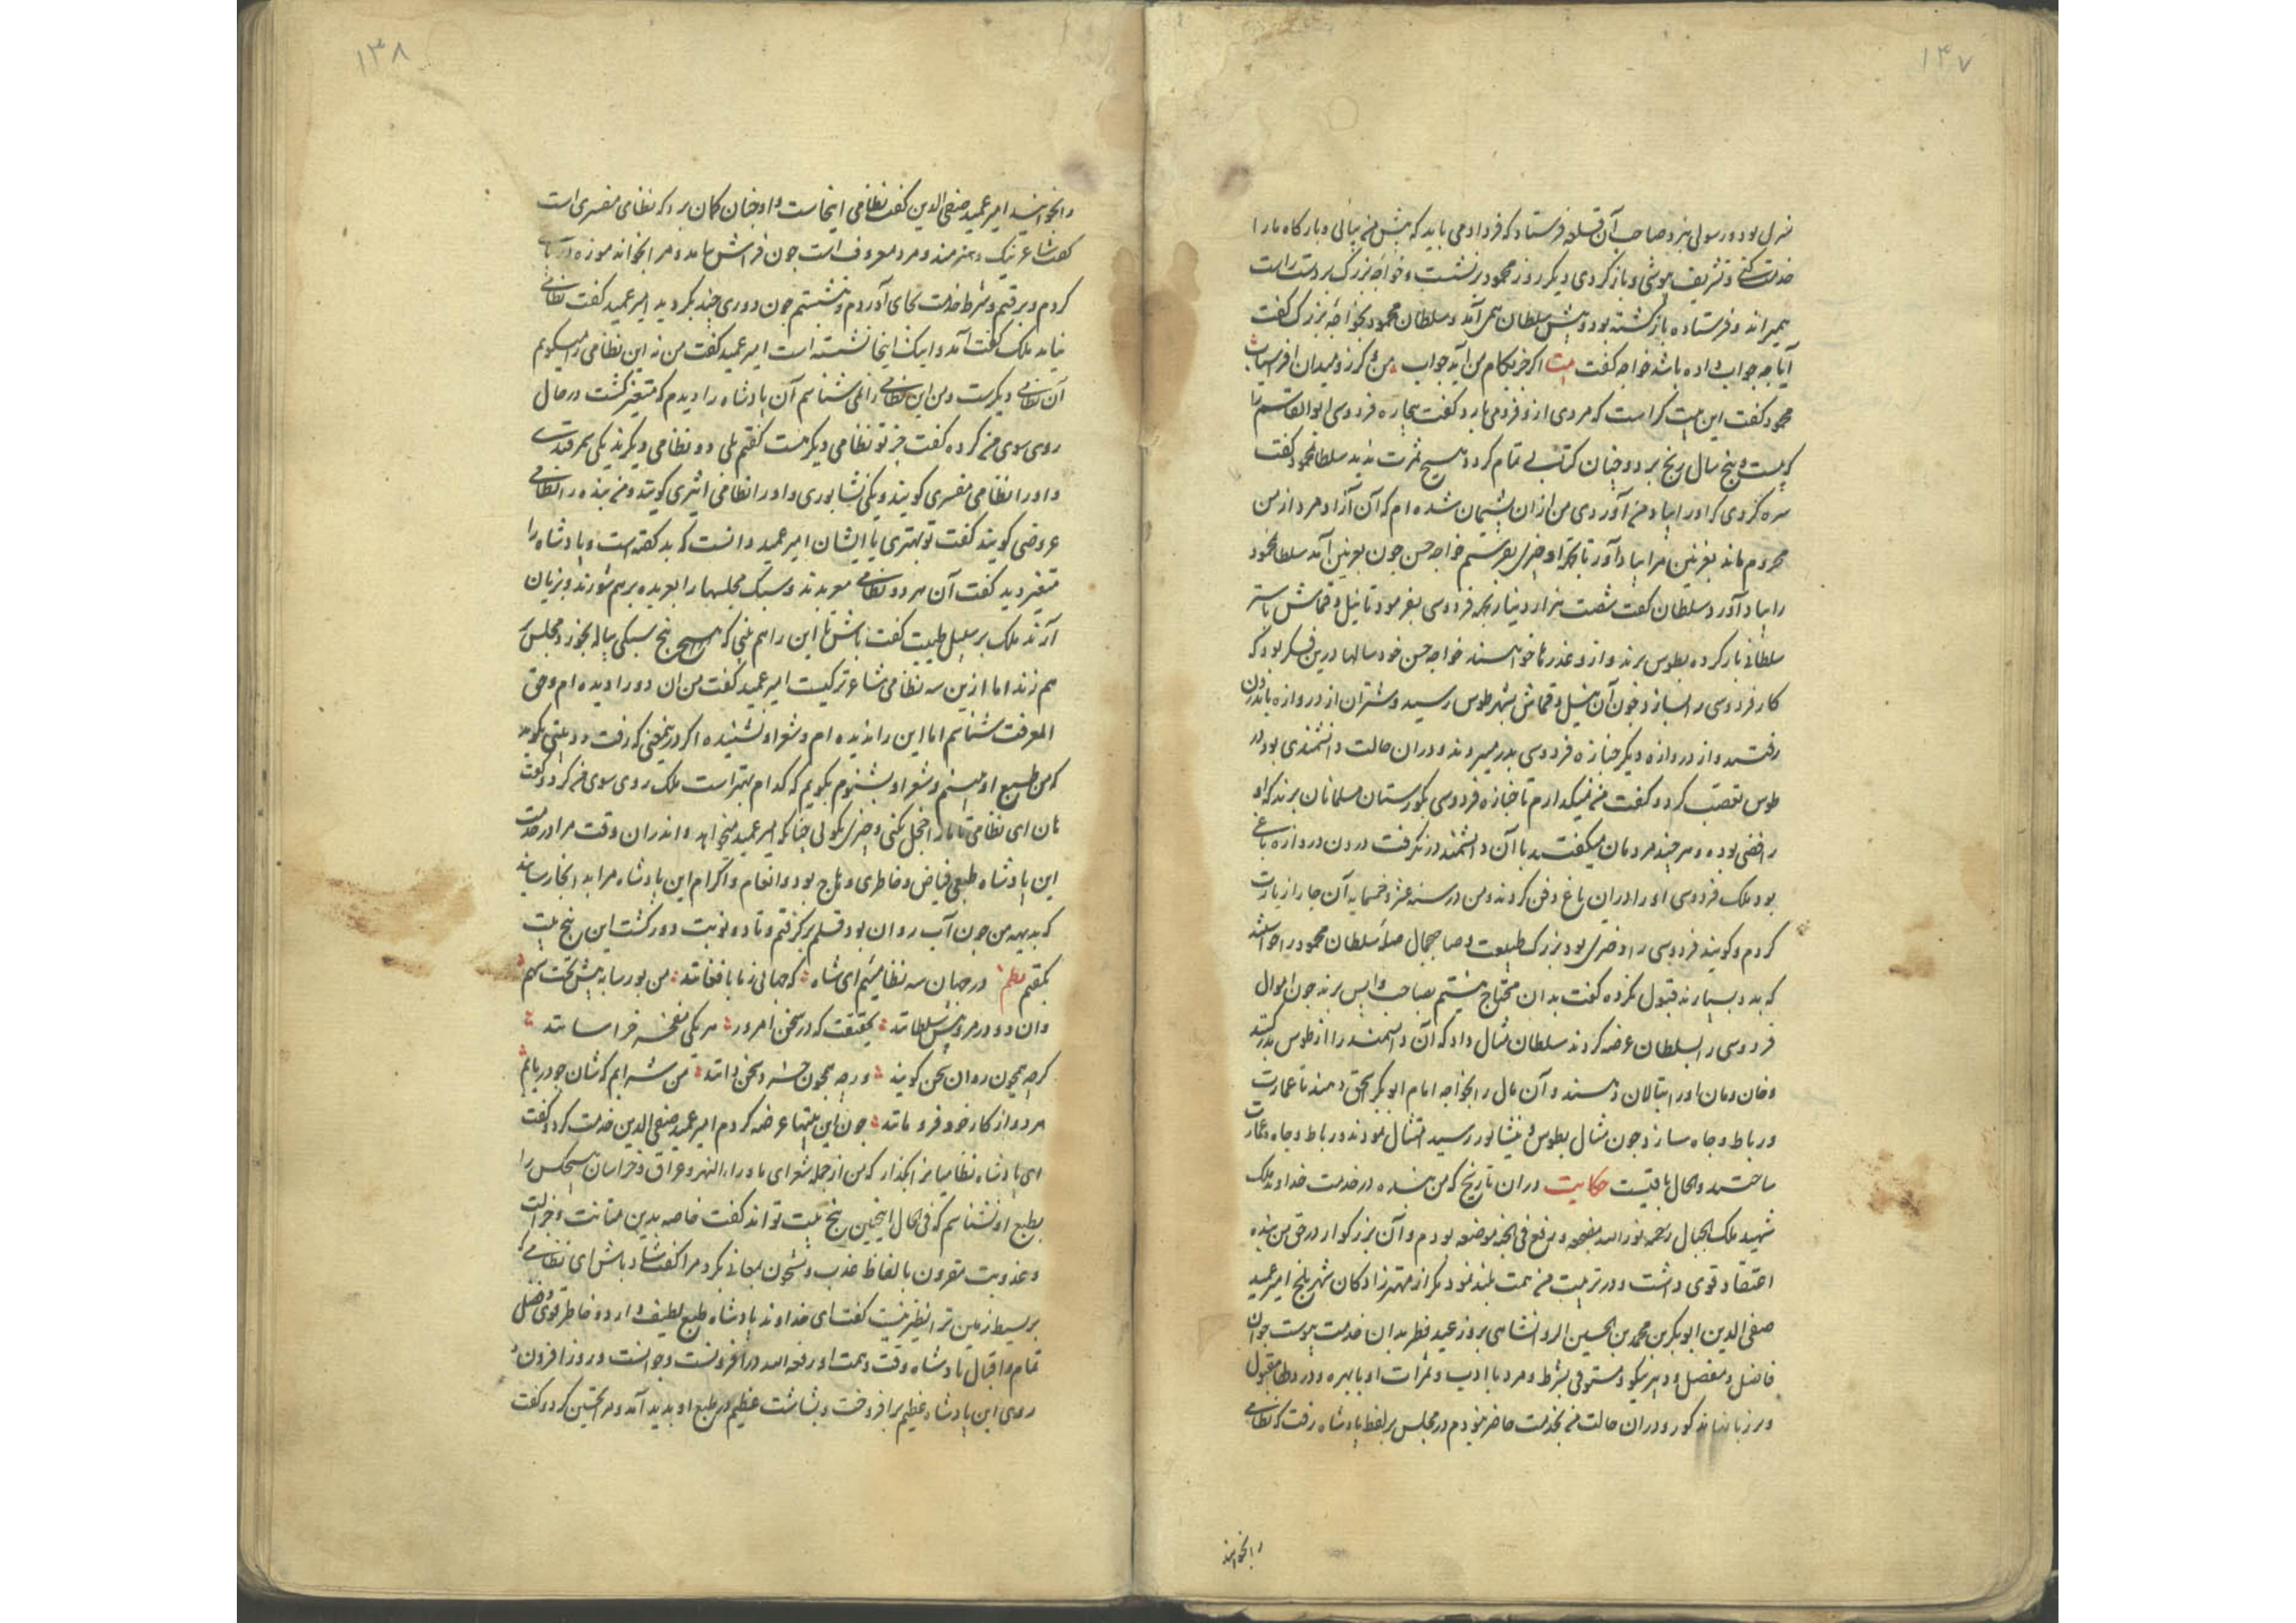 ۱۳۷
منزل بود و رسولی نزد صاحب آن قلعه فرستاد که فردا می باید که پیش من بیائی و بارگاه ما را
خدمت کنی و تشریف پوشی و باز گردی دیگر روز محمود برنشست و خواجه بزرگ بر دست راست
همیراند و فرستاده باز گشته بود و پیش سلطان همی آمد و سلطان محمود بخواجه بزرگ گفت
آیا چه جواب داده باشد خواجه گفت بیت اگر جز بکام من آید جواب من و گرز و میدان افراسیاب
محمود گفت این بیت کراست که مردی ازو فرو می بارد گفت بیچاره فردوسی ابوالقاسم را
که بیست و پنج سال رنج برد و چنان کتابی تمام کرد و هیچ ثمرت ندید سلطان محمود گفت
سره کردی که او را بیاد من آوردی من ازان پشیمان شده ام که آن آزاد مرد از من
محروم ماند بغزنین مرا بیاد آور تا بجهة او چیزی بفرستم خواجه حسن چون بغزنین آمد سلطان محمود
را بیاد آورد سلطان گفت شصت هزار دینار بجهة فردوسی بفرمود تا نیل و قماش با شتر
سلطانی بار کرده بطوس برند و ازو عذرها خواهند خواجه حسن خود سالها درین فکر بود که
کار فردوسی را بسازد چون آن نیل و قماش بشهر طوس رسید و شتران از دروازه باندرون
رفتند و از دروازه دیگر جنازه فردوسی بدر میبردند و دران حالت دانشمندی بود در
طوس تعصب کرد و گفت من نمیگذارم تا جنازه فردوسی بگورستان مسلمانان برند که او
رافضی بوده و هر چند مردمان میگفتند با آن دانشمند در نگرفت درون دروازه باغی
بود ملک فردوسی او را دران باغ دفن کردند و من در سنه عشر و خمسمایه آن جا را زیارت
کردم و گویند فردوسی را دختری بود بزرگ طبیعت و صاحب جمال صله سلطان محمود را خواستند
که بدو بسپارند قبول نکرده گفت بدان محتاج نیستم بصاحب واپس برند چون احوال
فردوسی را بسلطان عرضه کردند سلطان مثال داد که آن دانشمند را از طوس بدر کنند
و خان و مان او را بتالان دهند و آن مال را بخواجه امام ابوبکر بحق دهند تا عمارت
و رباط و چاه سازد چون مثال بطوس و نیشابور رسید امتثال نمودند و رباط و چاه و عمارت
ساختند والحال باقیست حکایت دران تاریخ که من بنده در خدمت خداوند ملک
شهید ملک الجبال رحمه نور الله مضجعه و رفع فی الجنة موضعه بودم و آن بزرگوار در حق من بنده
اعتقاد قوی داشت و در تربیت من همت بلند نمود مگر از مهتر زادگان شهر بلخ امیر عمید
صفی الدین ابوبکر بن محمد بن الحسین الروانشاهی بروز عید فطر بدان خدمت پیوست جوان
فاضل و مفضل و دبیر نیکو و مستوفی بشرط و مرد با ادب و ثمرات او با بهره و در دلها مقبول
و بر زبانها مذکور و دران حالت من بخدمت حاضر نبودم در مجلس بر لفظ پادشاه رفت که نظامی
را بخوانید
۱۳۸
را بخوانید امیر عمید صفی الدین گفت نظامی اینجاست و او چنان گمان برد که نظامی منیری است
گفت شاعر نیک و هنرمند و مرد معروف است چون فراش بیامد و مرا بخواند موزه در پای
کردم و برفتم و شرط خدمت بجای آوردم و بنشستم چون دوری چند بگردید امیر عمید گفت نظامی
نیامد ملک گفت آمد و اینک اینجا نشسته است امیر عمید گفت من نه این نظامی را میگویم
آن نظامی دیگرست و من این نظامی را نمی شناسم آن پادشاه را دیدم که متغیر گشت در حال
روی سوی من کرده گفت جز تو نظامی دیگر هست گفتم بلی دو نظامی دیگرند یکی سمرقندی
و او را نظامی منیری گویند و یکی نشابوری و او را نظامی اثیری گویند و من بنده را نظامی
عروضی گویند گفت تو بهتری یا ایشان امیر عمید دانست که بد گفته است و پادشاه را
متغیر دید گفت آن هر دو نظامی معربدند و سبک مجلسها را بعربده بر هم شورند و بزیان
آرند ملک بر سبیل طیبت گفت باش تا این را هم بینی که پنج سیکی پیاله بخورد و مجلس
هم زند اما ازین سه نظامی شاعرتر کیست امیر عمید گفت من ان دو را دیده ام و حق
المعرفت شناسم اما این را ندیده ام و شعر او نشنیده اگر در این معنی که رفت دو بیتی بگوید
که من طبع او ببینم و شعر او بشنوم بگویم که کدام بهتر است ملک روی سوی من کرد و گفت
هان ای نظامی تا ما را خجل نکنی و چیزی بگوئی چنانکه امیر عمید میخواهد و اندران وقت مرا در خدمت
این پادشاه طبعی فیاض و خاطری وهاج بود و انعام و اکرام این پادشاه مرا بدانجا رسانیده
که بدیهه من چون آب روان بود قلم بر گرفتم و تا دو نوبت دور گشت این پنج بیت
بگفتم نظم در جهان سه نظامئیم ای شاه که جهانی ز ما بافغانند من بورساد پیش تخت شهم
وان دو در مرو پیش سلطانند بحقیقت که در سخن امروز هر یکی مفخر خراسانند
گرچه همچون روان سخن گویند ورچه همچون خرد سخن دانند من شرابم که شان چو دریابم
هر دو از کار خود فرو مانند چون این بیتها عرضه کردم امیر عمید صفی الدین خدمت کرد و گفت
ای پادشاه نظامیانرا بگذار که من از جمله شعرای ماوراء النهر و عراق و خراسان هیچکس را
بطبع او نشناسم که فی الحال اینچنین پنج بیت تواند گفت خاصه بدین متانت و جزالت
و عذوبت مقرون بالفاظ عذب و مشحون بمعانی بکر مرا گفت شاد باش ای نظامی که
بر بسیط زمین ترا نظیر نیست گفت ای خداوند پادشاه طبع لطیف دارد و خاطر قوی و فضل
تمام و اقبال پادشاه وقت و همت او رفعه الله در افزونست و جوانست و روز افزون
روی این پادشاه عظیم برافروخت و بشاشت عظیم در طبع او پدید آمد و مرا تحسین کرد و گفت